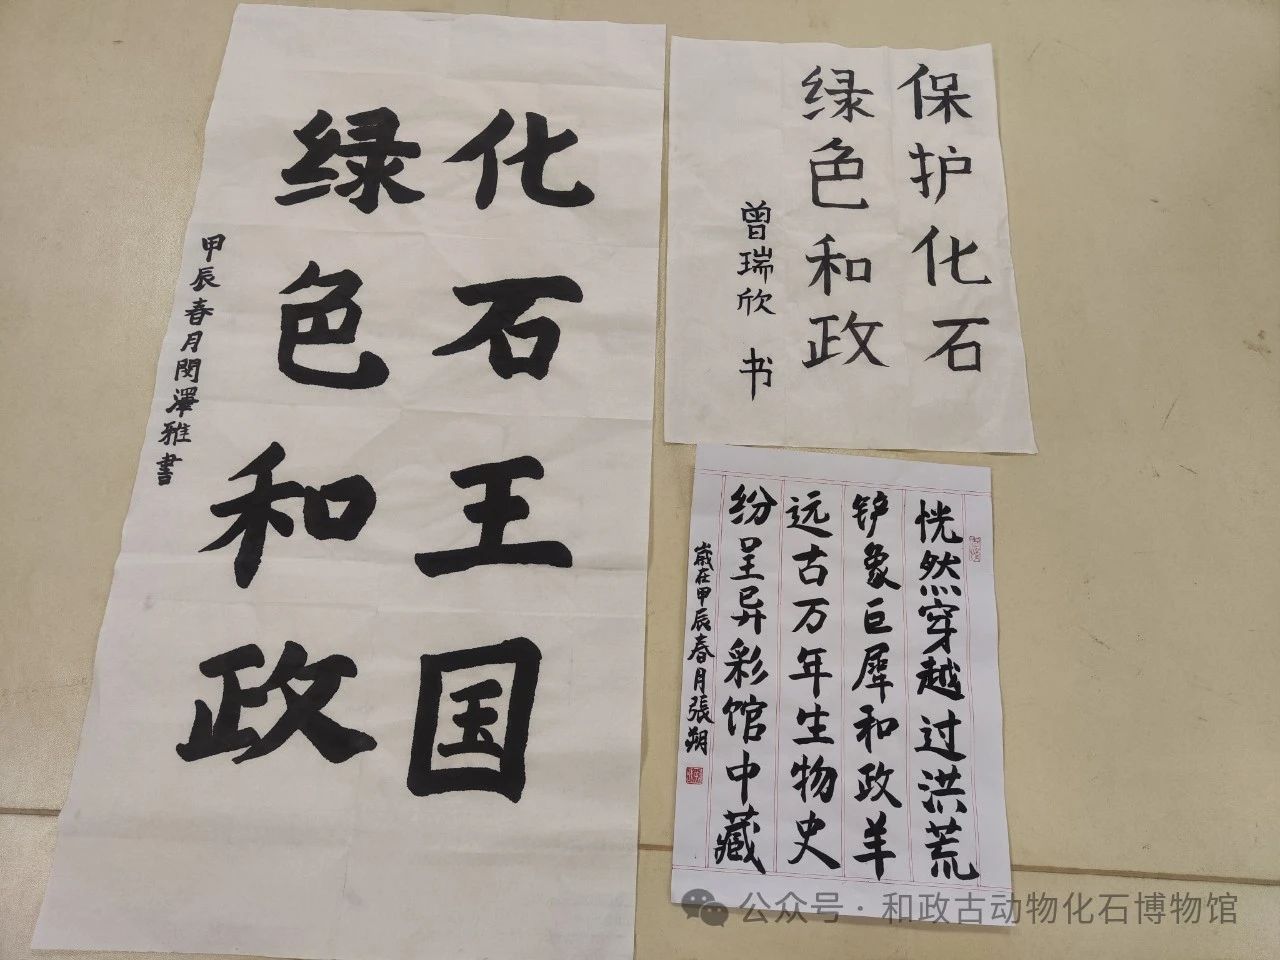 化石王国
绿色和政
甲辰春月闵澤雅書
保护化石
绿色和政
曾瑞欣 书
恍然穿越过洪荒
铲象巨犀和政羊
远古万年生物史
纷呈异彩馆中藏
歲在甲辰春月張朔
公众号·和政古动物化石博物馆